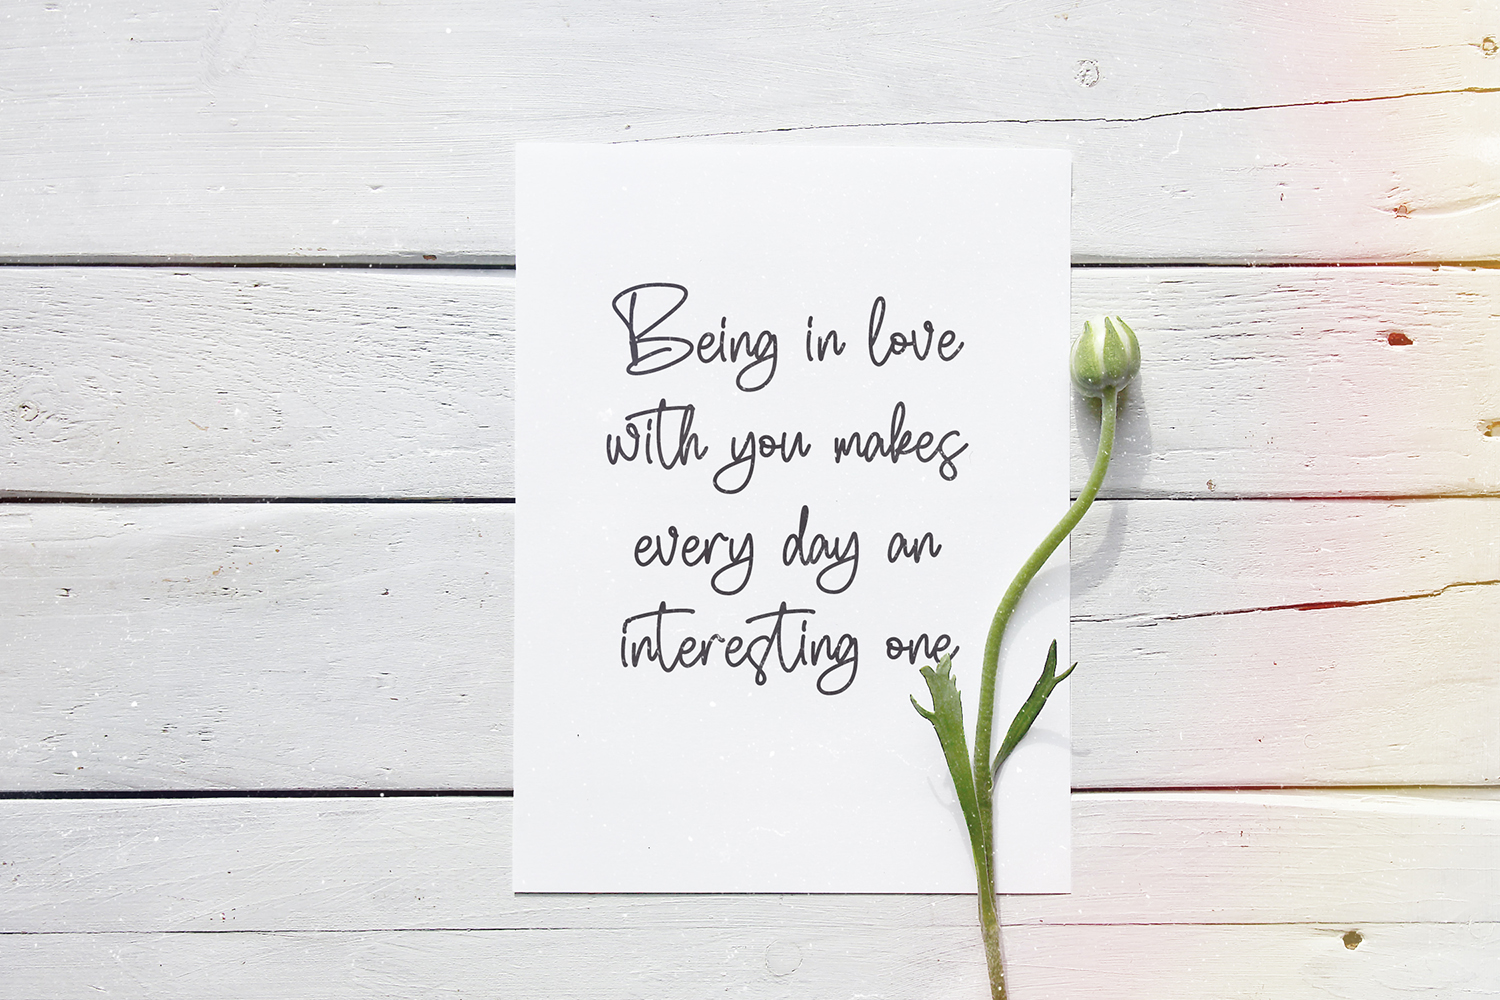 Being in love
with you makes
every day an
interesting one